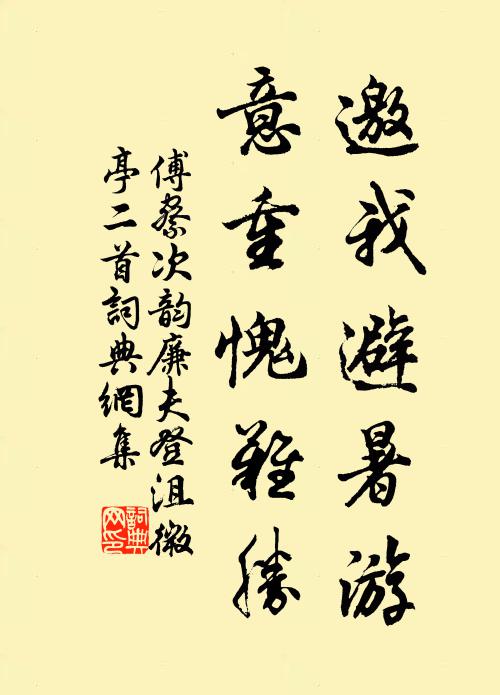 邀我避暑游
意重愧難勝
傅察次韵廉夫登沮徼
亭二首詞典網集
詞典網印